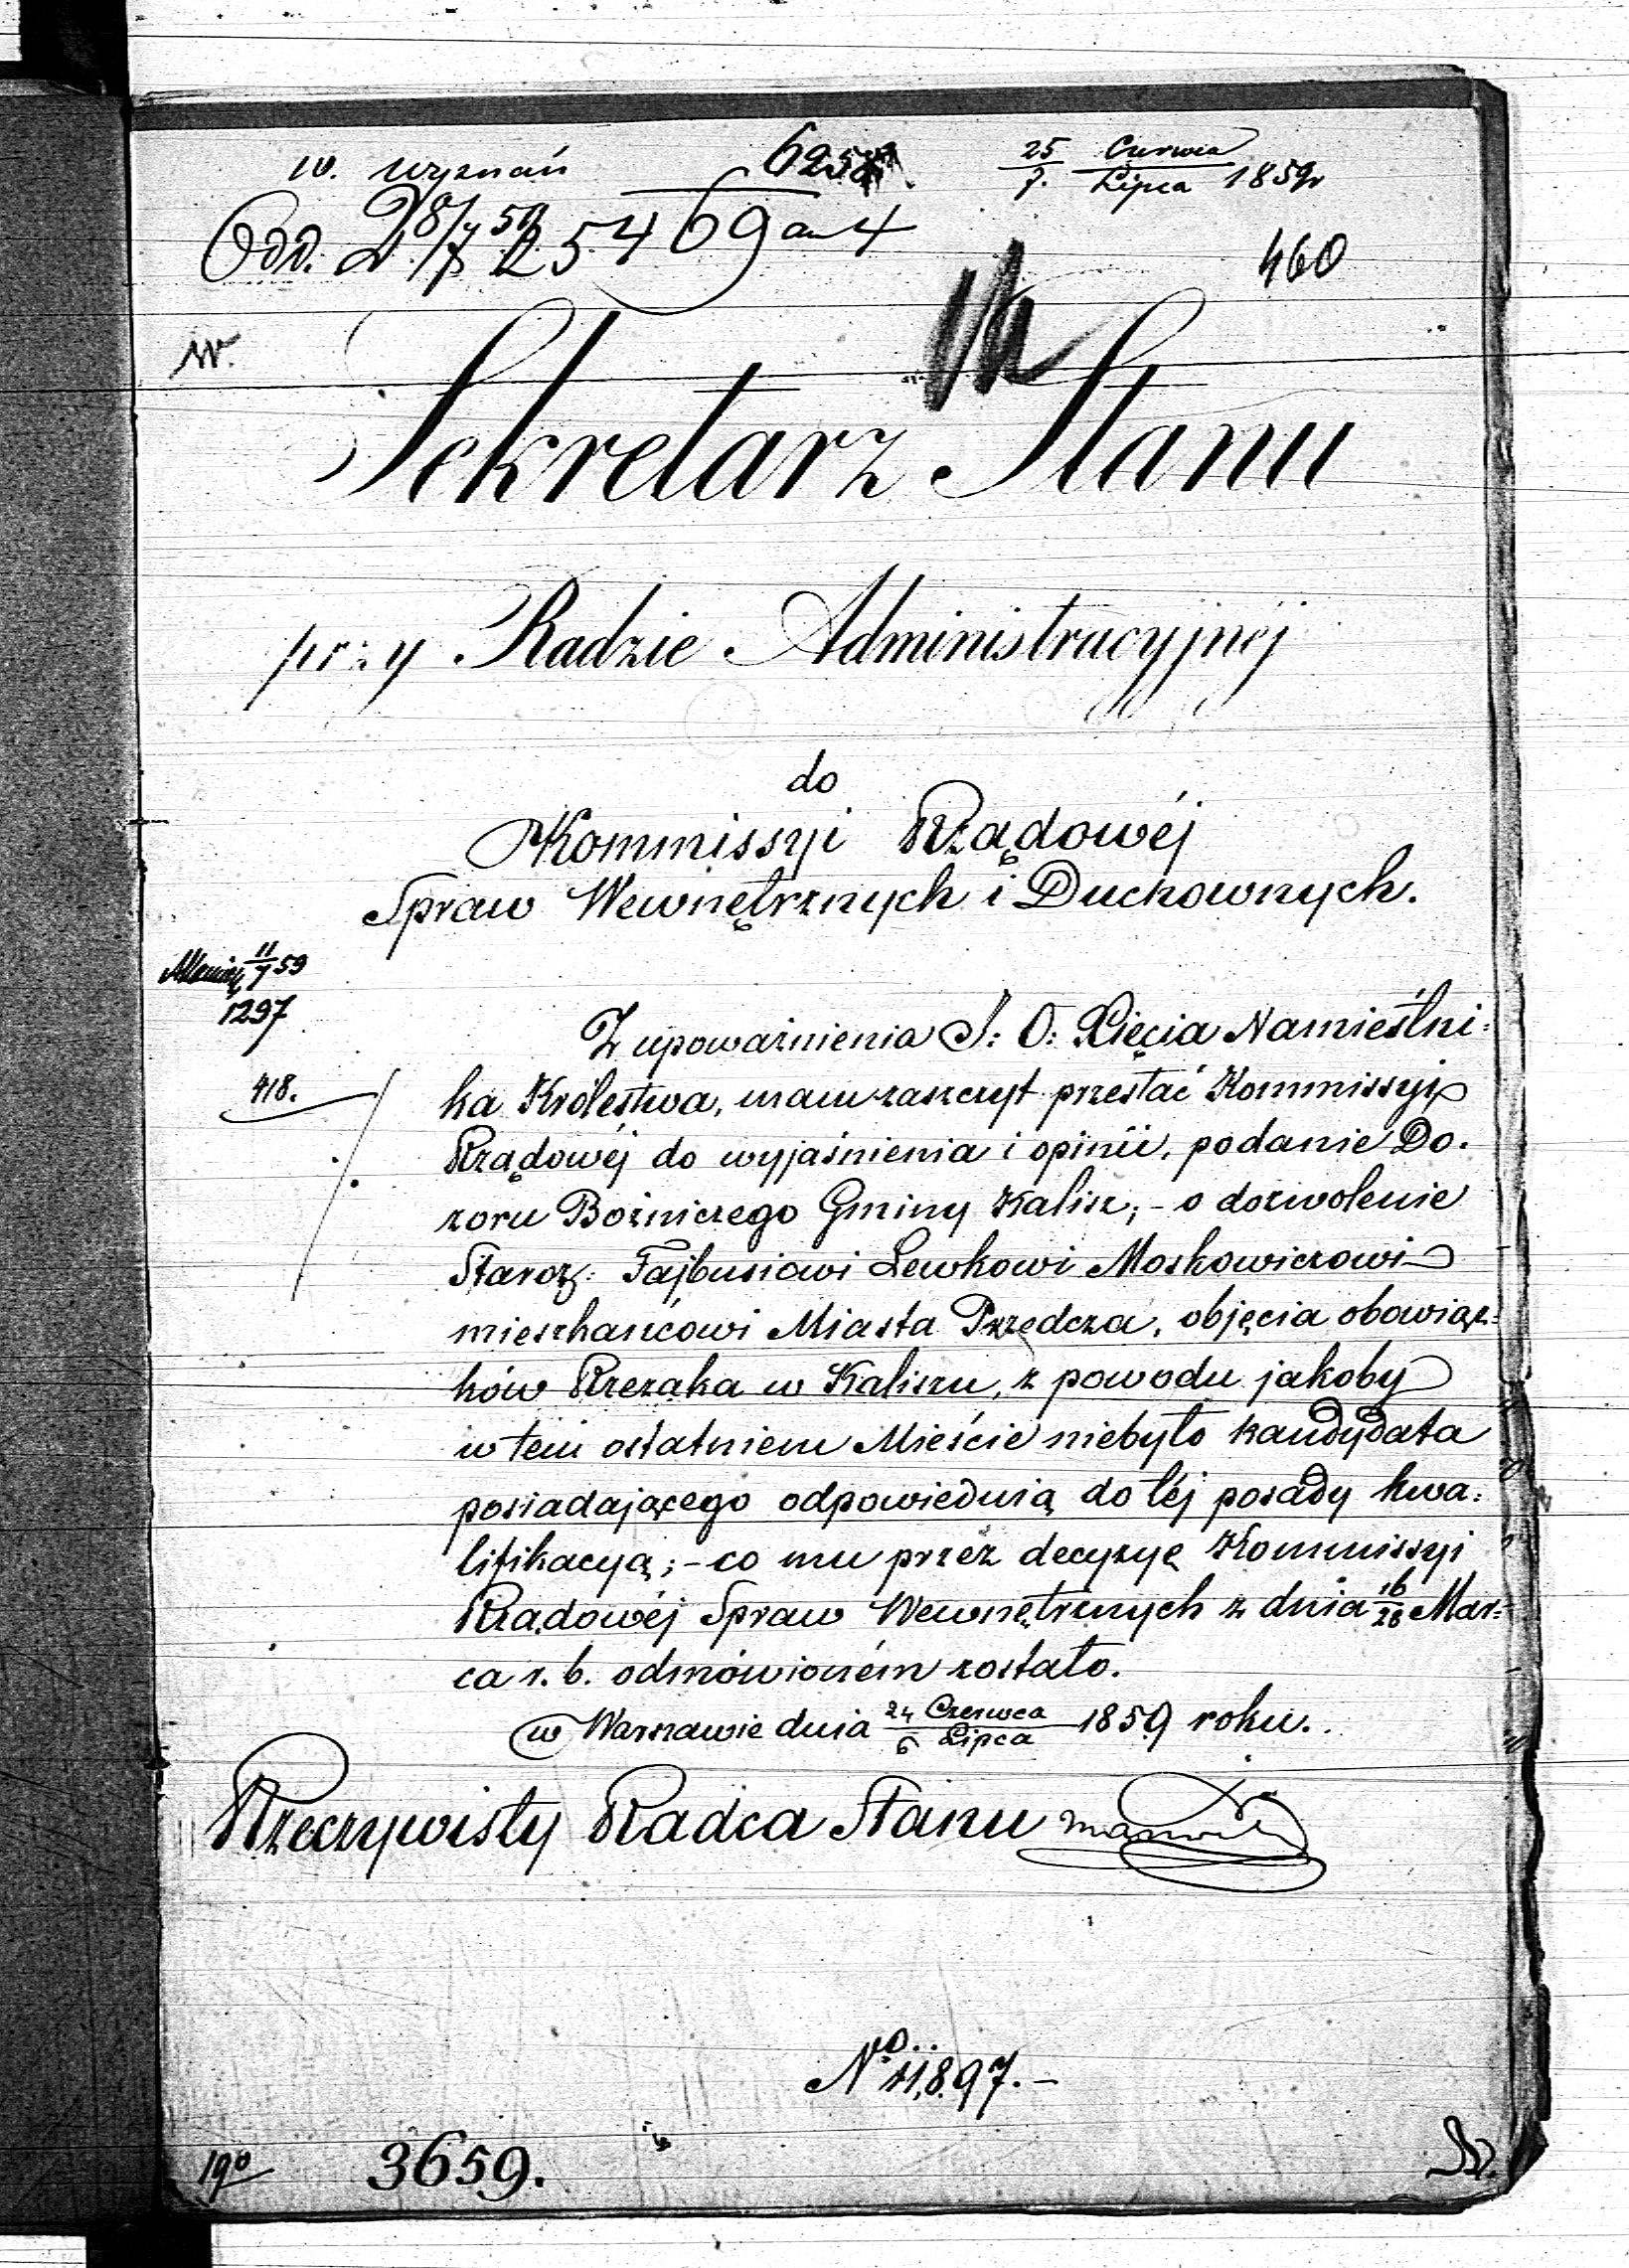 w. wyznań 6258 25/7. Czerwca/Lipca 1859r
Odd. 2. 8/7 59 25469 a 4
460
W.
Sekretarz Stanu
przy Radzie Administracyjnéj
do
Kommissyi Rządowéj
Spraw Wewnętrznych i Duchownych.
11/7 59
1297
418.
Z upoważnienia J: O: Xięcia Namiestni:
ka Królestwa, mam zaszczyt przesłać Kommissyi
Rządowéj do wyjaśnienia i opinii, podanie Do.
zoru Bożniczego Gminy Kalisz; - o dozwolenie
Staroz: Fajbusiowi Lewkowi Moskowiczowi
mieszkańcowi Miasta Przedcza, objęcia obowiąz:
ków Rzezaka w Kaliszu, z powodu jakoby
w tem ostatniem Mieście niebyło kandydata
posiadającego odpowiednią do téj posady kwa:
lifikacyą; - co mu przez decyzyę Kommissyi
Rządowéj Spraw Wewnętrznych z dnia 16/28 Mar:
ca r. b. odmówioném zostało.
w Warszawie dnia 24 Czerwca/6 Lipca 1859 roku.
Rzeczywisty Radca Stanu
No 11,897. -
190 3659.